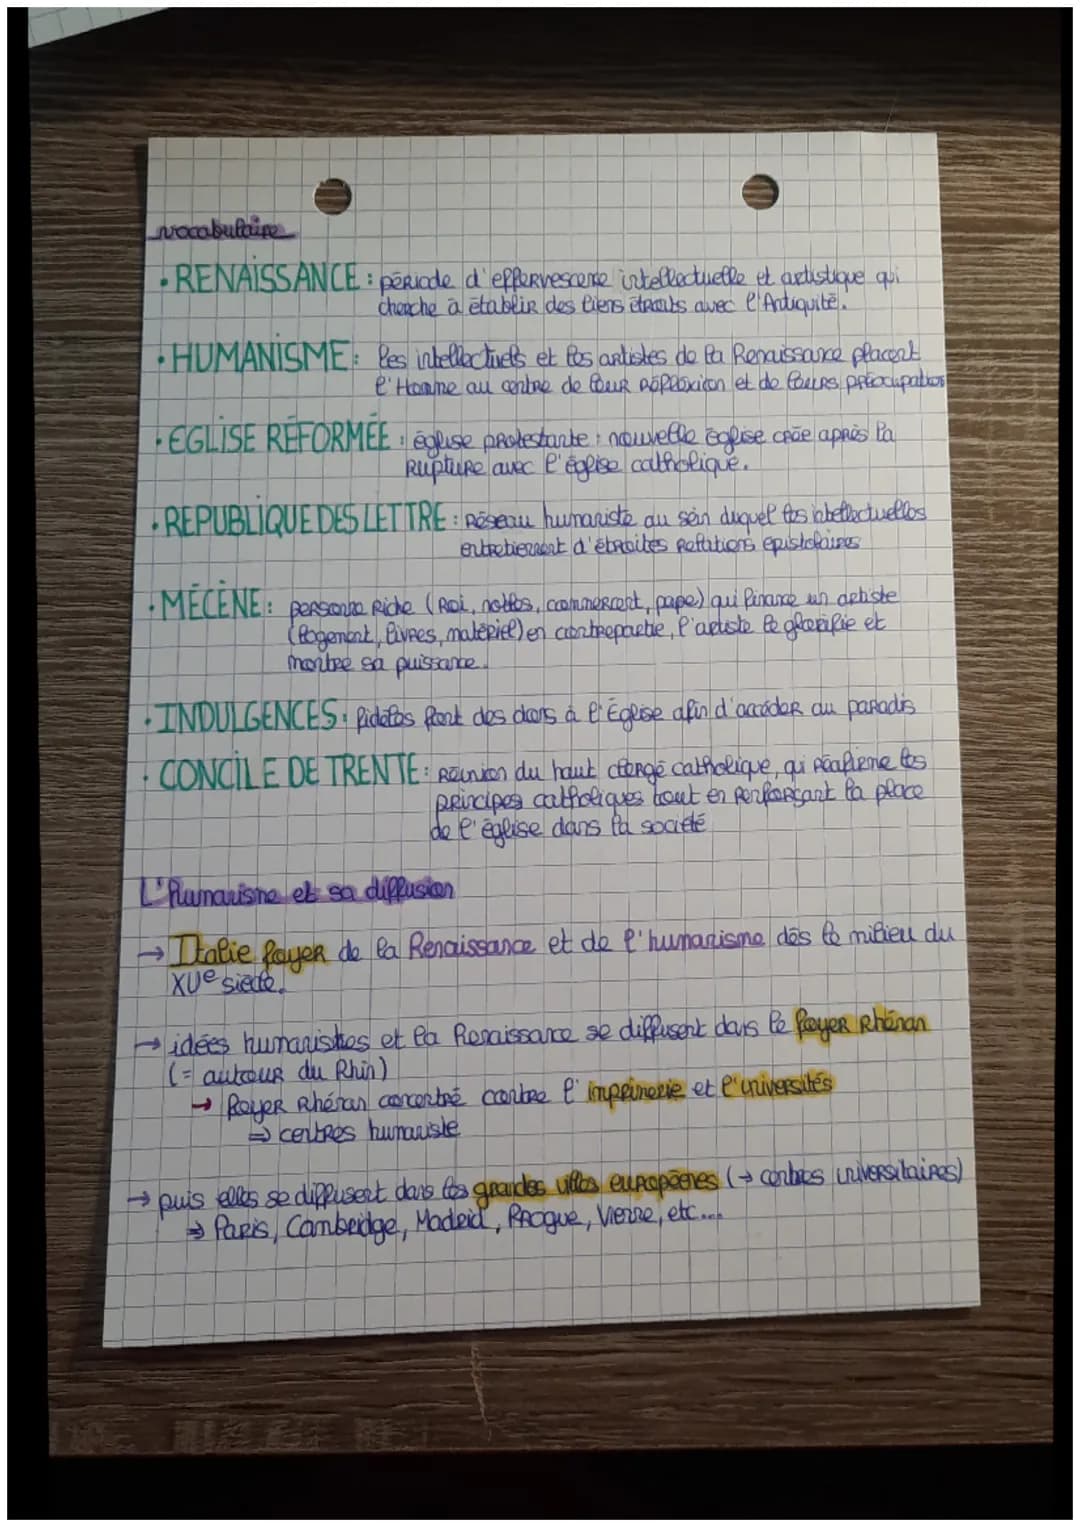 vocabulaire
• RENAISSANCE : période d'effervescence intellectuelle et artistique qui
cherche à établir des liens étroits avec l'Antiquité.
• HUMANISME : les intellectuels et les artistes de la Renaissance placent
l'Homme au centre de leur réflexion et de leurs préocupations
• EGLISE RÉFORMÉE : église protestante : nouvelle église crée après la
rupture avec l'église catholique.
• REPUBLIQUE DES LETTRE : Réseau humaniste au sein duquel les intellectuelles
entretiennent d'étroites relations epistolaires
• MÉCÈNE : personne riche (Roi, nobles, commercent, pape) qui finance un artiste
(logement, livres, matériel) en contrepartie, l'artiste le glorifie et
montre sa puissance.
• INDULGENCES : fidèles font des dons à l'Église afin d'accéder au paradis
• CONCILE DE TRENTE : Réunion du haut clergé catholique, qui réafirme les
principes catholiques tout en renforçant la place
de l'église dans la société
L'humanisme et sa diffusion
→ Italie foyer de la Renaissance et de l'humanisme dès le milieu du
XVe siècle.
→ idées humanistes et la Renaissance se diffusent dans le foyer Rhénan
(= autour du Rhin)
→ foyer Rhénan concentré contre l'imprimerie et l'universités
⇒ centres humaniste
→ puis elles se diffusent dans les grandes villes européenes (→ centres universitaires)
⇒ Paris, Cambridge, Madrid, Prague, Vienne, etc...